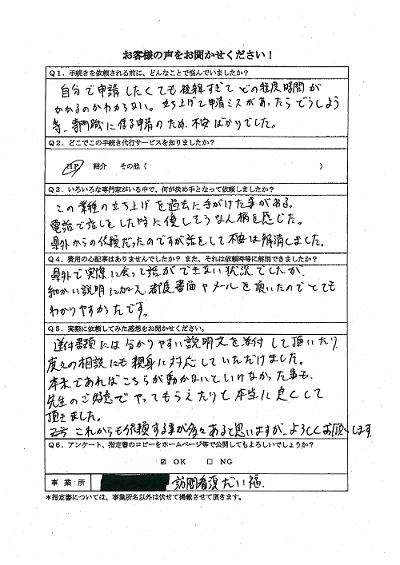 お客様の声をお聞かせください！
Q1．手続きを依頼される前に、どんなことで悩んでいましたか？
自分で申請したくても複雑すぎてどの程度時間が
かかるのかわからない。立ち上げで申請ミスがあったらどうしよう
等、専門職に係る申請のため、不安ばかりでした。
Q2．どこでこの手続き代行サービスを知りましたか？
HP 紹介 その他（ ）
Q3．いろいろな専門家がいる中で、何が決め手となって依頼しましたか？
この業種の立ち上げを過去に手がけた事がある。
電話で話しをした時に優しそうな人柄を感じた。
県外からの依頼だったのですが話をして不安は解消しました。
Q4．費用の心配事はありませんでしたか？ また、それは依頼時等に解消できましたか？
県外で実際に会って話ができない状況でしたが、
細かい説明に加え、都度書面やメールを頂いたのでとても
わかりやすかったです。
Q5．実際に依頼してみた感想をお聞かせください。
送付書類には分かりやすい説明文を添付して頂いたり
度々の相談にも親身に対応していただけました。
本来であればこちらが動かないといけなかった事も、
先生のご好意でやってもらえたりと本当に良くして
頂きました。
これからも依頼する事が多々あると思いますが、よろしくお願いします
Q6．アンケート、指定書のコピーをホームページ等で公開してもよろしいでしょうか？
☑ OK □ NG
事業所 訪問看護だい福
*指定書については、事業所名以外は伏せて掲載させて頂きます。